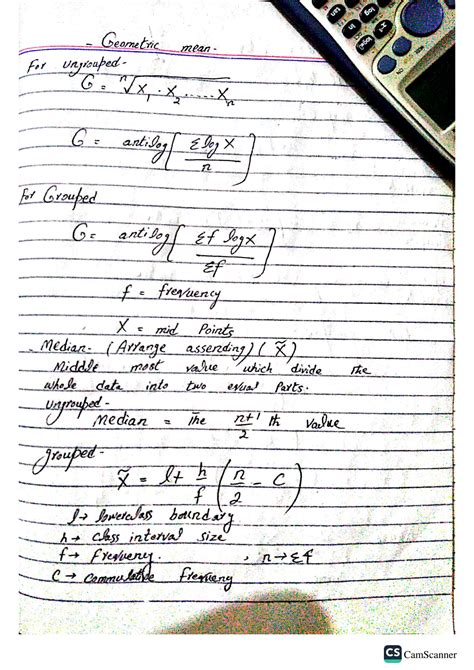 - Geometric mean -
For ungrouped -
G = ⁿ√X₁ · X₂ ..... Xₙ
G = antilog [ Σ log X / n ]
for Grouped
G = antilog [ Σf log X / Σf ]
f = frequency
X = mid Points
- Median - (Arrange assending) ( X̃ )
Middle most value which divide the
whole data into two equal Parts.
ungrouped -
Median = The n+1 / 2 th value
grouped -
X̃ = l + h/f ( n/2 - C )
l → lowerclass boundary
h → class interval size
f → Frequency. , n → Σf
C → Commulative frequency
CS CamScanner